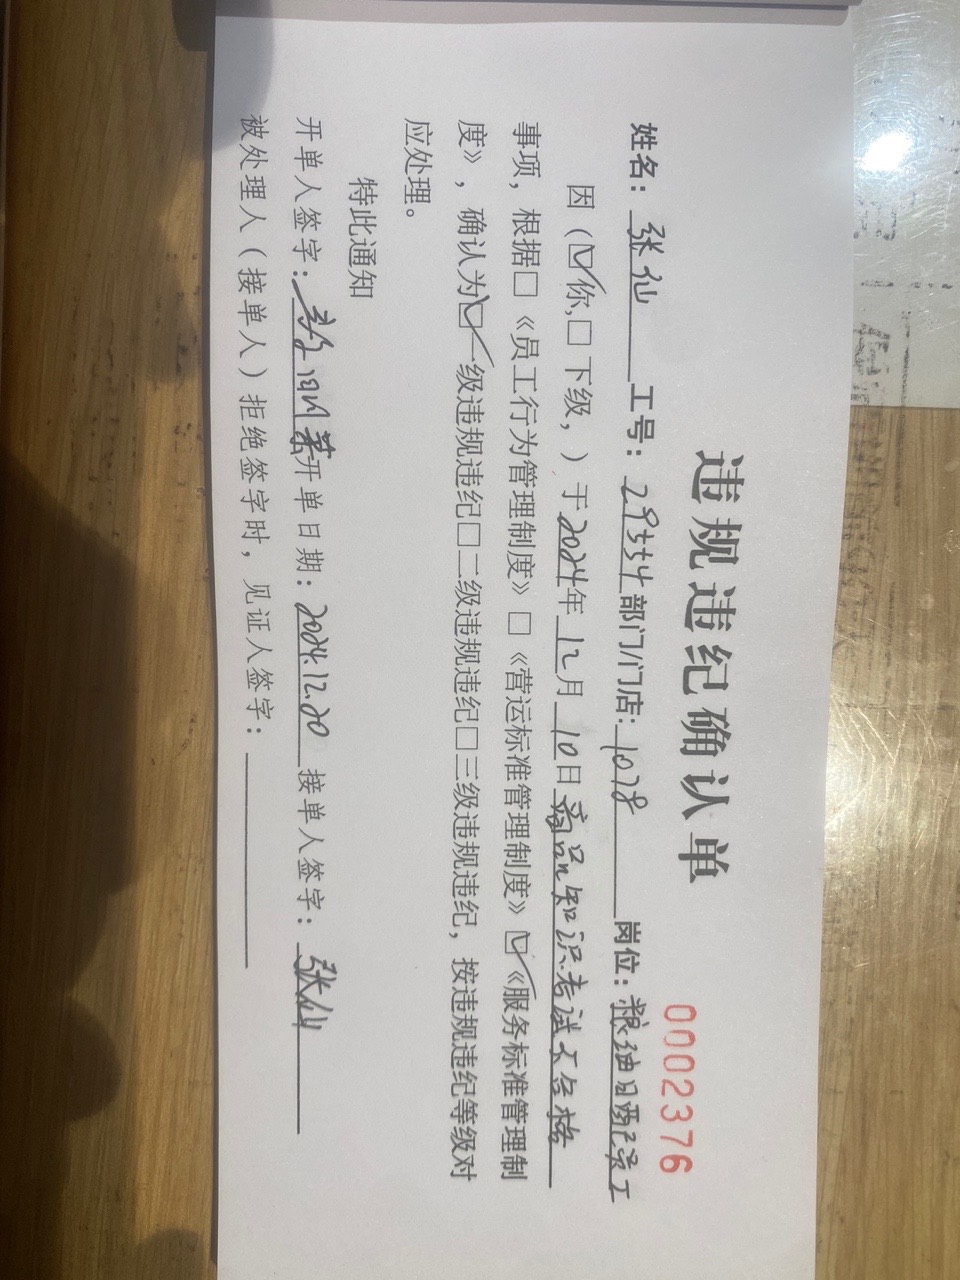 违规违纪确认单
0002376
姓名：张仙 工号：29554部门/门店:1078 岗位：粮油日配员工
因（☑你,□下级，）于2024年12月10日商品知识考试不合格
事项，根据□《员工行为管理制度》□《营运标准管理制度》☑《服务标准管理制
度》，确认为☑一级违规违纪□二级违规违纪□三级违规违纪，按违规违纪等级对
应处理。
特此通知
开单人签字: 开单日期：2024.12.20 接单人签字：张仙
被处理人（接单人）拒绝签字时，见证人签字：